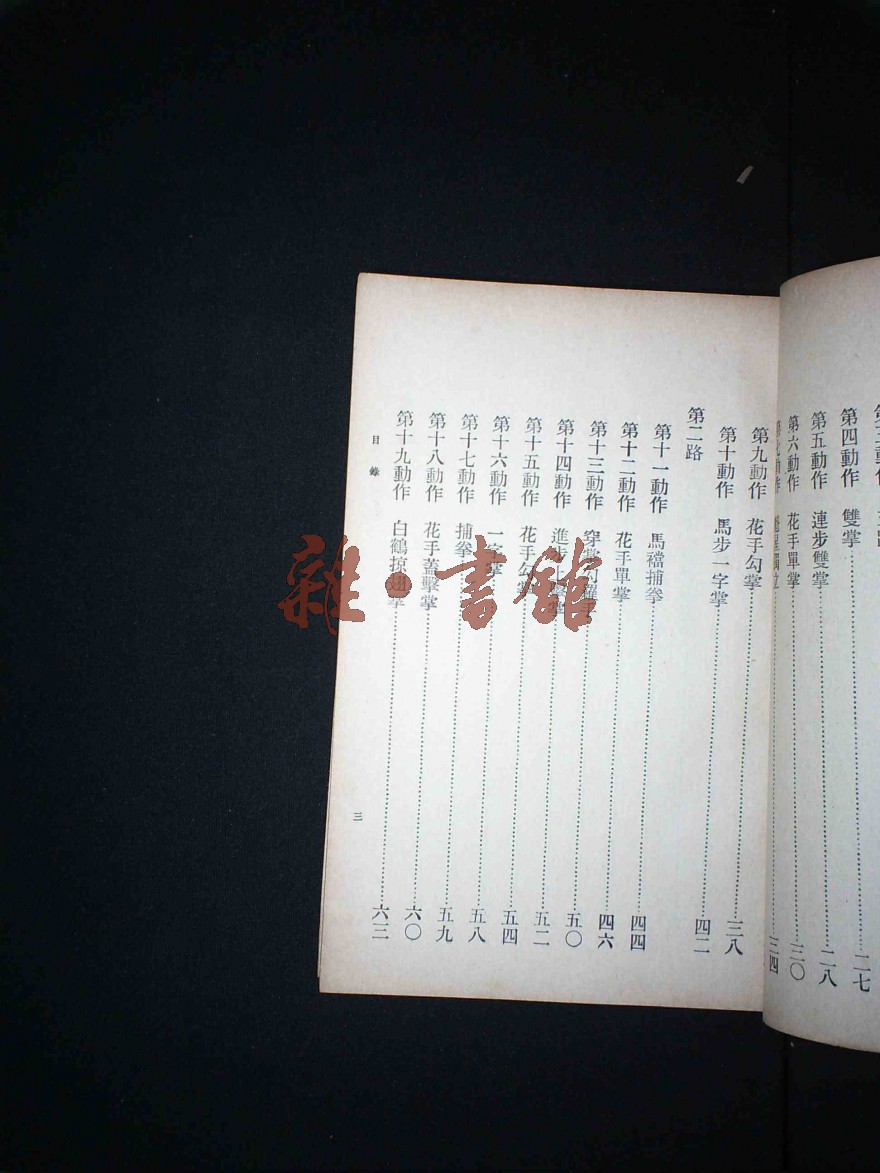 第四動作 雙掌……二七
第五動作 連步雙掌……二八
第六動作 花手單掌……三〇
動作 獨立……三四
第九動作 花手勾掌……三八
第十動作 馬步一字掌……四二
第二路
第十一動作 馬襠捕拳……四四
第十二動作 花手單掌……四六
第十三動作 穿掌勾摟手……五〇
第十四動作 進步掌……五二
第十五動作 花手勾掌……五四
第十六動作 一字掌……五八
第十七動作 捕拳……五九
第十八動作 花手蓋擊掌……六〇
第十九動作 白鶴掠翅掌……六三
目錄
三
雜·書館